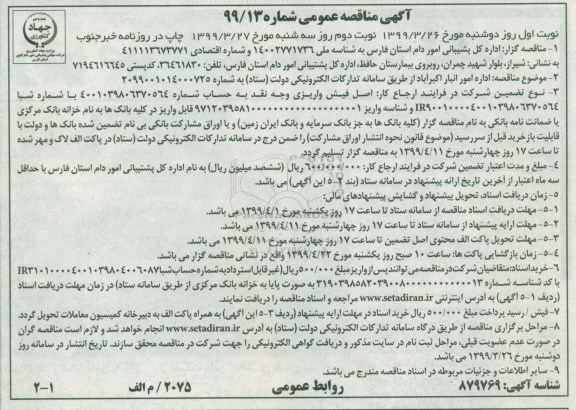 آگهی مناقصه عمومی شماره ۹۹/۱۳
جهاد کشاورزی
نوبت اول روز دوشنبه مورخ ۱۳۹۹/۳/۲۶ نوبت دوم روز سه شنبه مورخ ۱۳۹۹/۳/۲۷ چاپ در روزنامه خبرجنوب
۱- مناقصه گزار: اداره کل پشتیبانی امور دام استان فارس به شناسه ملی ۱۴۰۰۲۷۷۱۷۳۶ و شماره اقتصادی ۴۱۱۱۱۳۶۷۳۷۷۱
به نشانی: شیراز، بلوار شهید چمران، روبروی بیمارستان حافظ، اداره کل پشتیبانی امور دام استان فارس، تلفن: ۳۶۴۶۱۸۳۰، کدپستی ۷۱۹۴۶۱۶۶۴۵
۲- موضوع مناقصه: اداره امور انبار اکبرآباد از طریق سامانه تدارکات الکترونیکی دولت (ستاد) به شماره ۲۰۹۹۰۰۱۰۱۴۰۰۰۷۳۵
۳- نوع تضمین شرکت در فرایند ارجاع کار: اصل فیش واریزی وجه نقد به حساب شماره ۴۰۰۱۰۳۹۸۰۶۳۷۰۵۶۴ یا شماره شبا
قابل واریز در کلیه بانک ها به نام خزانه بانک مرکزی
یا ضمانت نامه بانکی به نام مناقصه گزار (کلیه بانک ها به جز بانک سرمایه و بانک ایران زمین) و یا اوراق مشارکت بانکی بی نام تضمین شده بانک ها و دولت با
قابلیت بازخرید قبل از سررسید (موضوع قانون نحوه انتشار اوراق مشارکت) را ضمن درج در سامانه تدارکات الکترونیکی دولت (ستاد) در پاکت الف لاک و مهر شده
تا ساعت ۱۷ روز چهارشنبه مورخ ۱۳۹۹/۴/۱۱ به مناقصه گزار تسلیم گردد.
۴- مبلغ و مدت اعتبار تضمین شرکت در فرایند ارجاع کار: ۶۰۰/۰۰۰/۰۰۰ ریال (ششصد میلیون ریال) به نام اداره کل پشتیبانی امور دام استان فارس با حداقل
سه ماه اعتبار از آخرین تاریخ ارائه پیشنهاد در سامانه ستاد (بند ۲-۵ این آگهی) می باشد.
۵- زمان دریافت اسناد، تحویل پیشنهاد و گشایش پیشنهادهای مالی:
۱-۵- مهلت دریافت اسناد مناقصه از سامانه ستاد تا ساعت ۱۷ روز یکشنبه مورخ ۱۳۹۹/۴/۱ می باشد.
۲-۵- مهلت ارایه پیشنهاد از سامانه ستاد تا ساعت ۱۷ روز چهارشنبه مورخ ۱۳۹۹/۴/۱۱ می باشد.
۳-۵- مهلت تحویل پاکت الف محتوی اصل تضمین تا ساعت ۱۷ روز چهارشنبه مورخ ۱۳۹۹/۴/۱۱ می باشد.
۴-۵- زمان بازگشایی پاکت ها: ساعت ۱۰ صبح روز یکشنبه مورخ ۱۳۹۹/۴/۲۲ واقع در نشانی مناقصه گزار می باشد.
۶- خرید اسناد: متقاضیان شرکت در مناقصه می توانند پس از واریز مبلغ ۵۰۰/۰۰۰ ریال (غیر قابل استرداد) به شماره حساب شبا
با کد شناسه به صورت پایا به خزانه بانک مرکزی از طریق سامانه ستاد) در زمان مهلت دریافت اسناد
(ردیف ۱-۵ آگهی) به آدرس اینترنتی www.setadiran.ir مراجعه و اسناد مناقصه را دریافت نمایند.
۷- فیش / رسید پرداخت مبلغ ۵۰۰/۰۰۰ ریال خرید اسناد در مهلت ارایه پیشنهاد (ردیف ۳-۵ این آگهی) به همراه پاکت الف به دبیرخانه کمیسیون معاملات تحویل گردد.
۸- مراحل برگزاری مناقصه از طریق درگاه سامانه تدارکات الکترونیکی دولت (ستاد) به آدرس www.setadiran.ir انجام خواهد شد و لازم است مناقصه گران
در صورت عدم عضویت قبلی، مراحل ثبت نام در سایت مذکور و دریافت گواهی الکترونیکی را جهت شرکت در مناقصه محقق سازند. تاریخ انتشار در سامانه روز
دوشنبه مورخ ۱۳۹۹/۳/۲۶ می باشد.
۹- سایر اطلاعات و جزئیات مربوطه در اسناد مناقصه مندرج می باشد.
شناسه آگهی: ۸۷۹۷۶۹ روابط عمومی ۲۰۷۵/ م الف ۲-۱